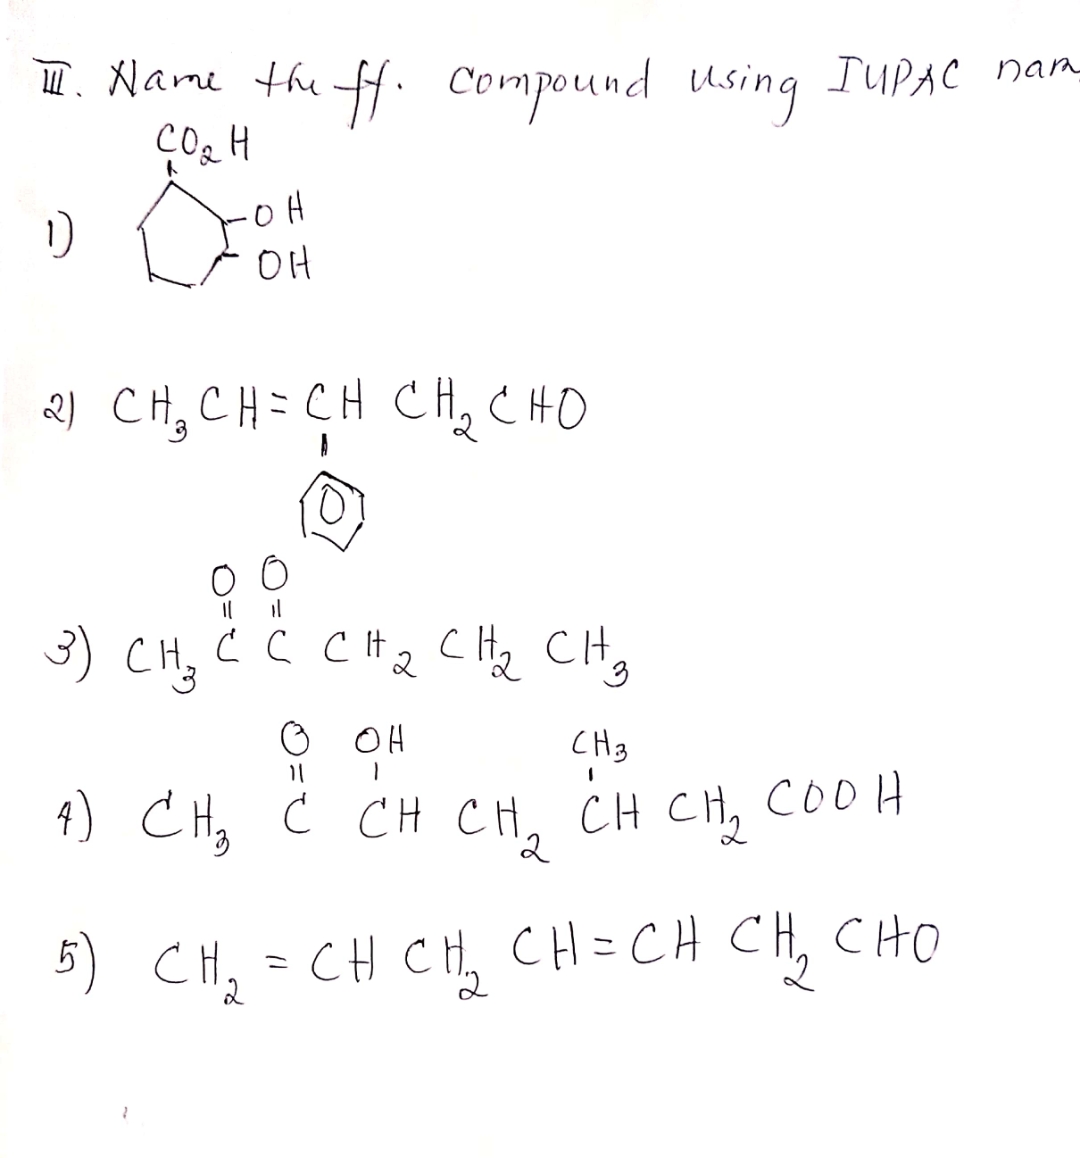 III. Name the ff. Compound using IUPAC nam
CO₂H
1)
-OH
OH
2) CH₃CH=CH CH₂CHO
O O
3) CH₃ C C CH₂ CH₂ CH₃
O OH CH₃
4) CH₃ C CH CH₂ CH CH₂ COOH
5) CH₂ = CH CH₂ CH=CH CH₂ CHO